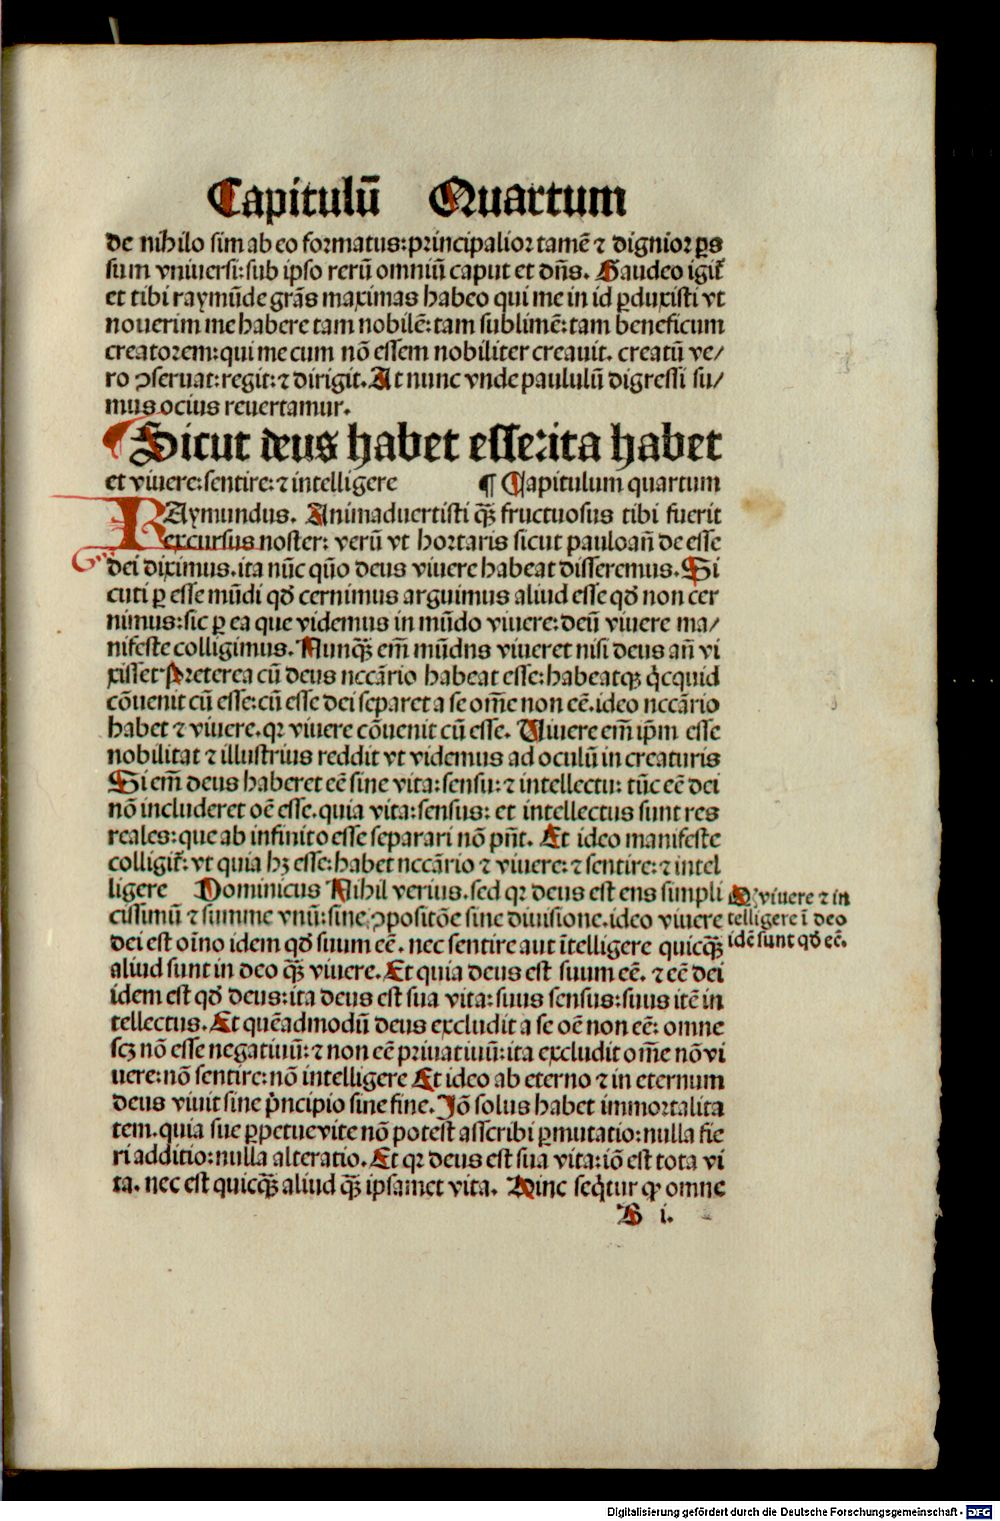 Capitulū Quartum
de nihilo sim ab eo formatus: principalior tamē ⁊ dignior ꝑs
sum vniuersi: sub ipso rerū omniū caput et dn̄s. Gaudeo igit᷑
et tibi raymūde grās maximas habeo qui me in id ꝑduxisti vt
nouerim me habere tam nobilē: tam sublimē: tam beneficum
creatorem: qui me cum nō essem nobiliter creauit. creatū ve/
ro ↄseruat: regit: ⁊ dirigit. At nunc vnde paululū digressi su/
mus ocius reuertamur.
Sicut deus habet esse: ita habet
et viuere: sentire: ⁊ intelligere ¶ Capitulum quartum
RAymundus. Animaduertisti qꝫ̄ fructuosus tibi fuerit
excursus noster: verū vt hortaris sicut pauloan̄ de esse
dei diximus. ita nūc quō deus viuere habeat disseremus. Si
cuti ꝑ esse mūdi qđ cernimus arguimus aliud esse qđ non cer
nimus: sic ꝑ ea que videmus in mūdo viuere: deū viuere ma/
nifeste colligimus. Nunqꝫ̄ em̄ mūdns viueret nisi deus an̄ vi
xisset Preterea cū deus nccārio habeat esse: habeatqꝫ qͥcquid
cōuenit cū esse: cū esse dei separet a se om̄e non eē. ideo nccārio
habet ⁊ viuere. qꝛ viuere cōuenit cū esse. Viuere em̄ ip̄m esse
nobilitat ⁊ illustrius reddit vt videmus ad oculū in creaturis
Si em̄ deus haberet eē sine vita: sensu: ⁊ intellectu: tūc eē dei
nō includeret oē esse. quia vita: sensus: et intellectus sunt res
reales: que ab infinito esse separari nō pn̄t. Et ideo manifeste
colligit᷑: vt quia hꝫ esse: habet nccārio ⁊ viuere: ⁊ sentire: ⁊ intel
ligere Dominicus Nihil verius. sed qꝛ deus est ens simpli
cissimū ⁊ summe vnū: sine ↄpositōe sine diuisione. ideo viuere
dei est oīno idem qđ suum eē. nec sentire aut ītelligere quicqꝫ̄
aliud sunt in deo qꝫ̄ viuere. Et quia deus est suum eē. ⁊ eē dei
idem est qđ deus: ita deus est sua vita: suus sensus: suus itē in
tellectus. Et quēadmodū deus excludit a se oē non eē: omne
scꝫ nō esse negatiuū: ⁊ non eē priuatiuū: ita excludit om̄e nō vi
uere: nō sentire: nō intelligere Et ideo ab eterno ⁊ in eternum
deus viuit sine pͥncipio sine fine. Iō solus habet immortalita
tem. quia sue ꝑpetue vite nō potest asscribi ꝑmutatio: nulla fie
ri additio: nulla alteratio. Et qꝛ deus est sua vita: iō est tota vi
ta. nec est quicqꝫ̄ aliud qꝫ̄ ipsamet vita. Hinc seqͥtur ꝙ omne
B i.
Q viuere ⁊ in
telligere ī deo
idē sunt qđ eē.
Digitalisierung gefördert durch die Deutsche Forschungsgemeinschaft - DFG